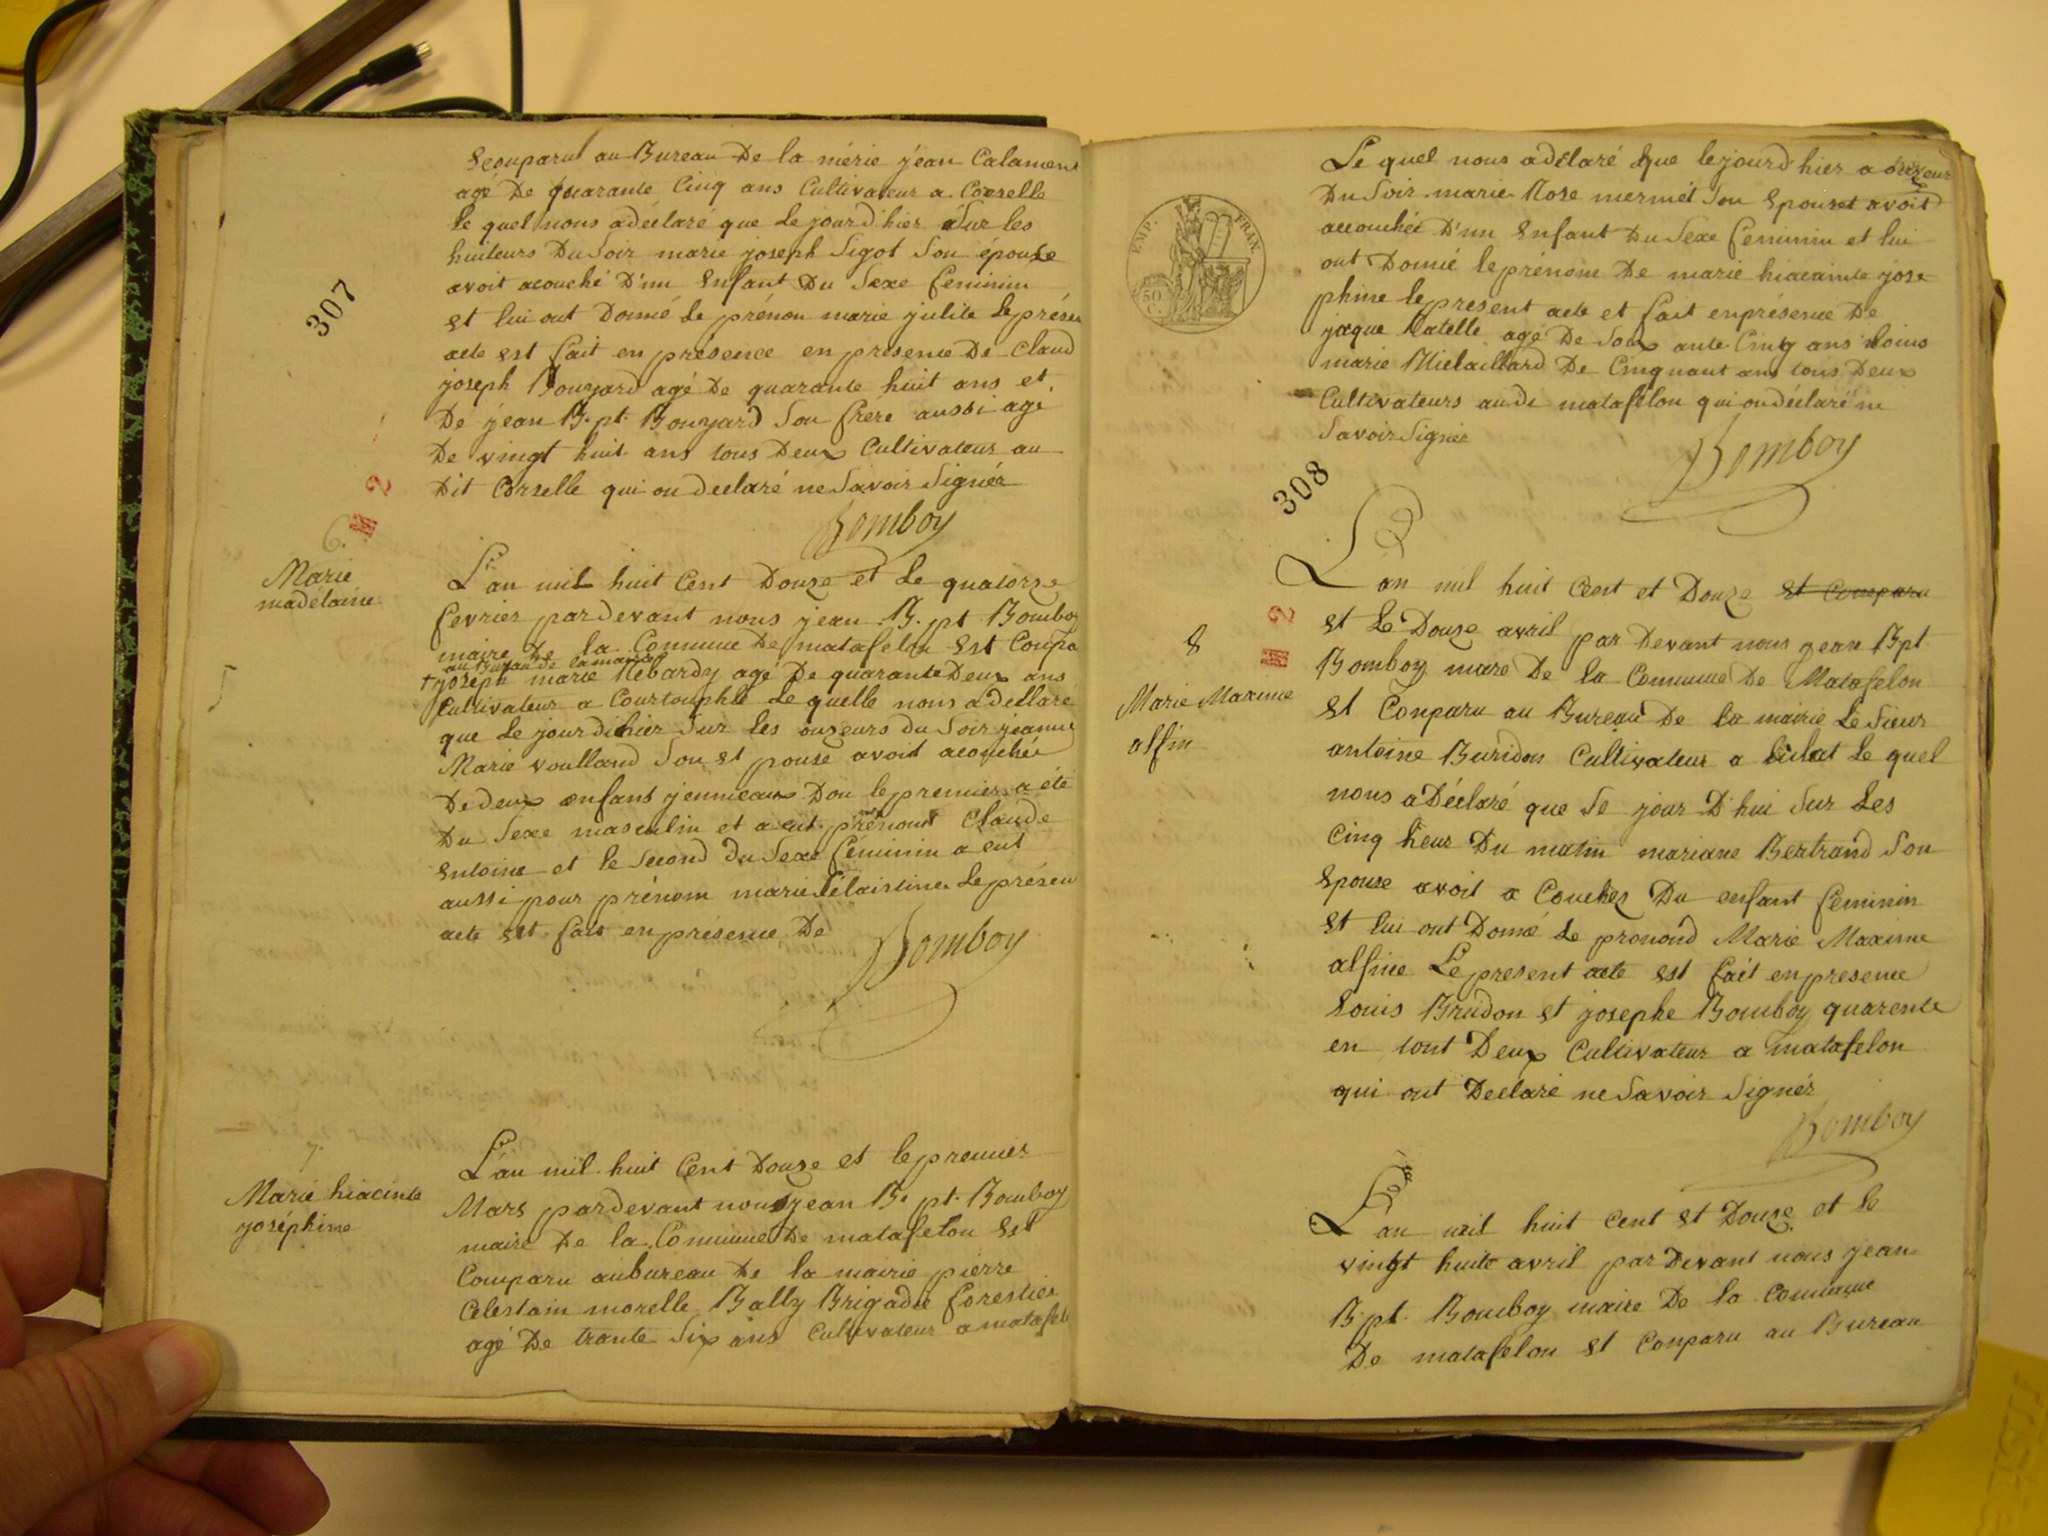 307
est comparu au Bureau De la mérie jean Calamen
agé De quarante Cinq ans Cultivateur a Corselle
le quel nous a déclaré que Le jourd'hier a Sur les
huiteurs Du Soir marie joseph Sigot Son épouse
avoit acouché D'un Enfant Du Sexe feminin
et lui ont Donné Le prénon marie julite Le présen
acte est fait en présence en présence De Claud
joseph Bouyard agé De quarante huit ans et
De jean B.pt. Bouyard Son frere aussi agé
De vingt huit ans tous Deux Cultivateur au
Dit Corselle qui on declaré ne Savoir Signée
Bomboy
2
6.
Marie
madélaine
L'an mil huit Cent Douze et Le quatorze
fevrier pardevant nous jean B.pt Bomboy
maire De la Commune De matafelon Est Compa
au Bureau de la mairie
+ joseph marie Rébardy agé De quarante Deux ans
Cultivateur a Courtouphle Le quelle nous a déclaré
que Le jourdhier Sur les onzeurs du Soir jeanne
Marie voulland Son Epouse avoit acouchée
De deux enfans jumeaux Don le premier a été
Du Sexe masculin et a eut prénom Claude
Entoine et le Second du Sexe féminin a eut
aussi pour prénom marie Célaistine Le présen
acte est fait en présence De
Bomboy
7.
Marie hiacinte
joséphine
L'an mil huit Cent Douze et le premier
Mars pardevant nous jean B. pt. Bomboy
maire De la Commune De matafelon Est
Comparu au bureau De la mairie pierre
Celestain morelle Bally Brigadié forestier
agé De trante Six ans Cultivateur a matafel
EMP. FRAN.
50 C.
Le quel nous a déclaré que le jourd'hier a onzeur
Du Soir marie Rose mermet Son Epouse avoit
accouchée D'un Enfant Du Sexe feminin et lui
ont Donné le prénom De marie hiacainte jose
phine le present acte et fait en présence De
jaque Catelle agé De Soix ante Cinq ans
marie Mielaillard De Cinquant ans tous Deux
Cultivateurs au di matafelon qui on déclaré ne
Savoir Signer
Bomboy
308
2
8
Marie Maxime
alfin
L'an mil huit Cent et Douze et Comparu
et Le Douze avril par Devant nous jean Bpt
Bomboy mare De la Commune De Matafelon
est Comparu au Bureau De la mairie Le Sieur
antoine Buridon Cultivateur a Le quel
nous a Déclaré que Le jour D'hui Sur Les
Cinq heur Du matin mariane Bertrand Son
Epouse avoit a Couchez Du enfant feminin
et lui ont Donné Le pronond Marie Maxime
alfine Le present acte est fait en presence
Louis Brudon et josephe Bomboy quarente
en tout Deux Cultivateur a matafelon
qui ont Declaré ne Savoir Signér
Bomboy
L'an mil huit Cent et Douze et le
vingt huite avril par Devant nous jean
B.pt. Bomboy maire De la Commune
De matafelon et Comparu au Bureau